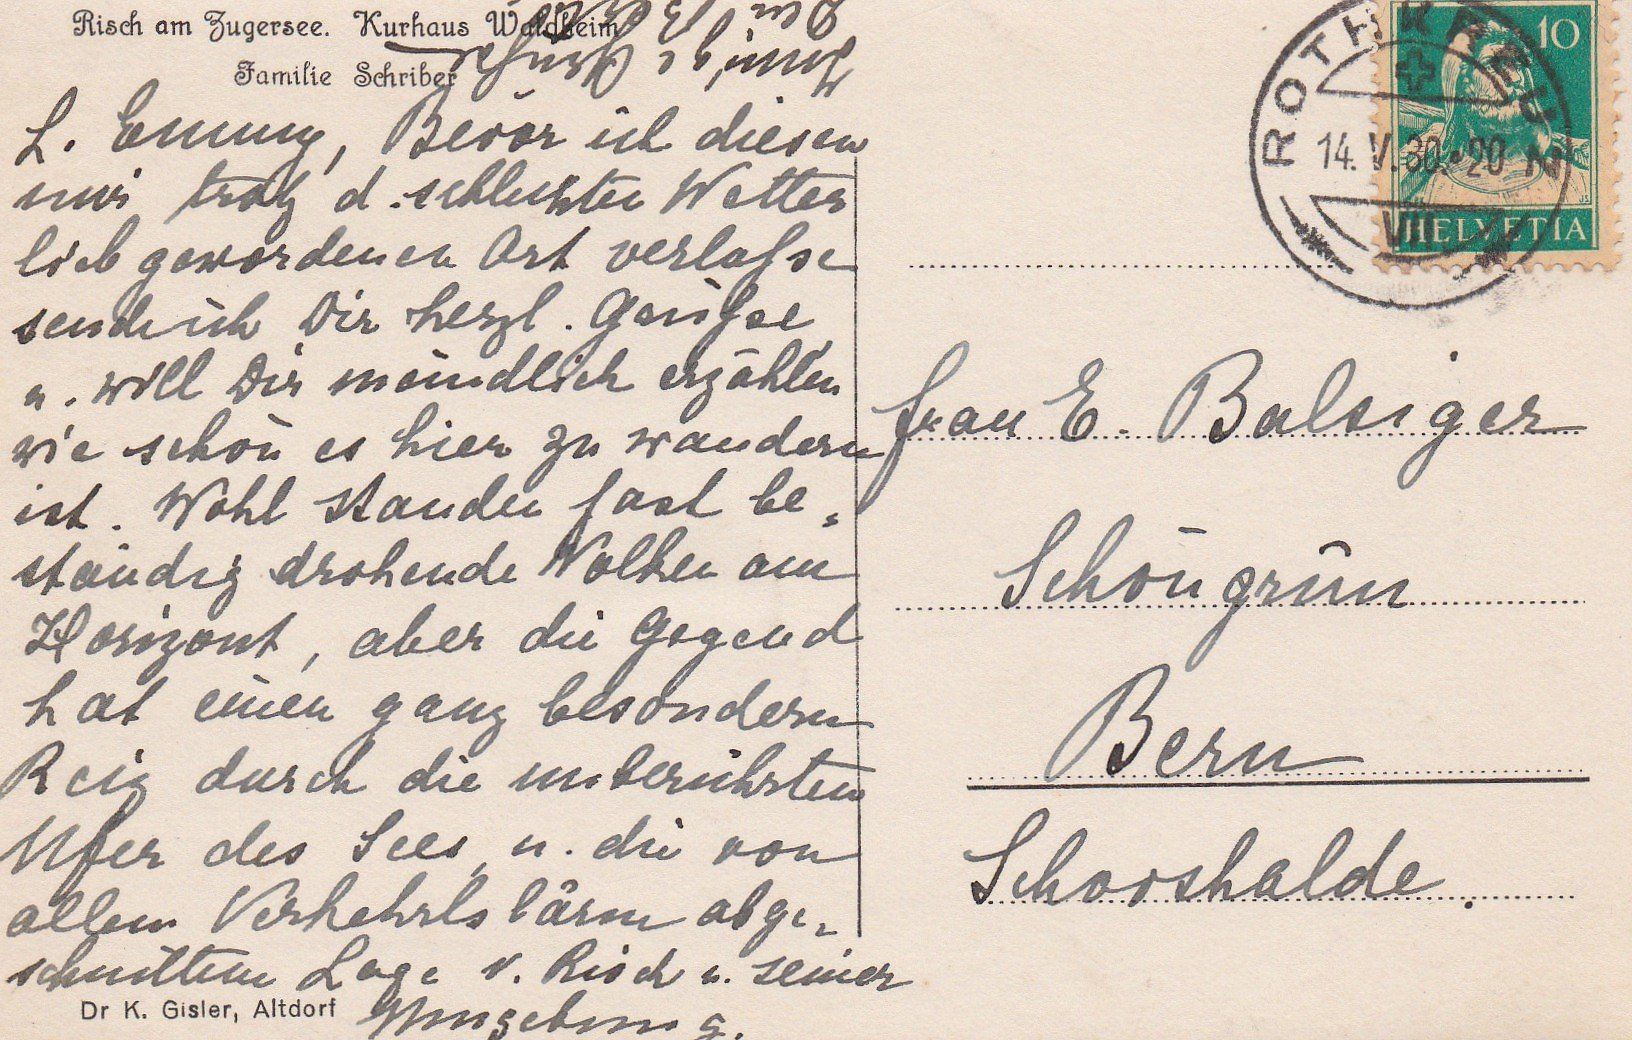 Risch am Zugersee. Kurhaus Waldheim
Familie Schriber
L. Emmy, Bevor ich diesen
mir trotz d. schlechten Wetter
lieb gewordenen Ort verlasse
sende ich Dir herzl. Grüsse
u. will Dir mündlich erzählen
wie schön es hier zu wandern
ist. Wohl standen fast be-
ständig drohende Wolken am
Horizont, aber die Gegend
hat einen ganz besondern
Reiz durch die unberührten
Ufer des Sees, u. die von
allem Verkehrslärm abge-
schnittene Lage v. Risch u. seiner
Umgebung.
Dr K. Gisler, Altdorf
ROTHKREUZ
14. V. 30. - 20
VII
10
HELVETIA
Frau E. Balsiger
Schöngrün
Bern
Schosshalde.